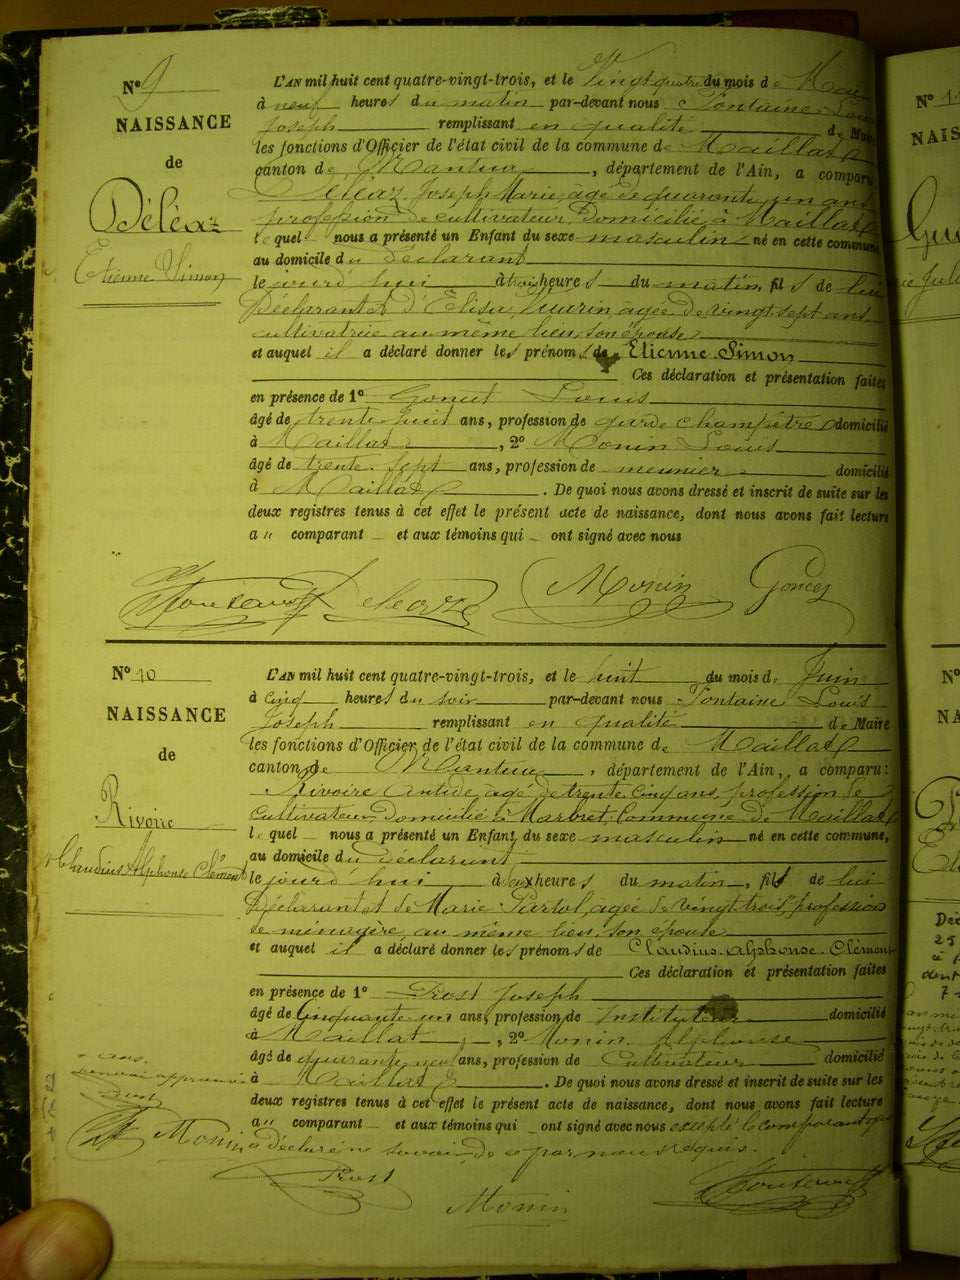 N° 9
NAISSANCE
de
Déléaz
Etienne Simon
L'AN mil huit cent quatre-vingt-trois, et le vingt quatre du mois de Mai
à neuf heures du matin par-devant nous Fontaine Louis
Joseph remplissant en qualité de Maire
les fonctions d'Officier de l'état civil de la commune de Maillat
canton de Nantua, département de l'Ain, a comparu
Déléaz Joseph Marie, agé de quarante un ans
profession de cultivateur, Domicilié à Maillat
lequel nous a présenté un Enfant du sexe masculin né en cette commune
au domicile du déclarant
le jourd'hui à trois heures du matin, fils de lui
Déclarant et d'Elisa Guarin, agée de vingt sept ans
cultivatrice au même lieu, son épouse
et auquel il a déclaré donner les prénoms de Etienne-Simon
Ces déclaration et présentation faites
en présence de 1° Goncet Louis
âgé de trente huit ans, profession de garde champêtre domicilié
à Maillat, 2° Monin Louis
âgé de trente sept ans, profession de meunier domicilié
à Maillat. De quoi nous avons dressé et inscrit de suite sur les
deux registres tenus à cet effet le présent acte de naissance, dont nous avons fait lecture
a u comparant et aux témoins qui ont signé avec nous
Déléaz Monin Goncet
N° 10
NAISSANCE
de
Rivoire
Claudius Alphonse Clément
L'AN mil huit cent quatre-vingt-trois, et le huit du mois de Juin
à cinq heures du soir par-devant nous Fontaine Louis
Joseph remplissant en qualité de Maire
les fonctions d'Officier de l'état civil de la commune de Maillat
canton de Nantua, département de l'Ain, a comparu:
Rivoire Antide, agé de trente cinq ans, profession de
cultivateur, Domicilié à Marbret, Commune de Maillat
lequel nous a présenté un Enfant du sexe masculin né en cette commune,
au domicile du Déclarant
le jourd'hui à deux heures du matin, fils de lui
Déclarant et de Marie Partol, agée de vingt trois, profession
de ménagère, au même lieu, son épouse
et auquel il a déclaré donner les prénoms de Claudius-Alphonse-Clément
Ces déclaration et présentation faites
en présence de 1° Prost Joseph
âgé de Cinquante un ans, profession de Instituteur domicilié
à Maillat, 2° Monin Alphonse
âgé de quarante neuf ans, profession de Cultivateur domicilié
à Maillat. De quoi nous avons dressé et inscrit de suite sur les
deux registres tenus à cet effet le présent acte de naissance, dont nous avons fait lecture
a u comparant et aux témoins qui ont signé avec nous excepté le comparant qui
a déclaré ne savoir de ce par nous requis.
ans
renvoi approuvé
Prost
Monin
Prost Monin